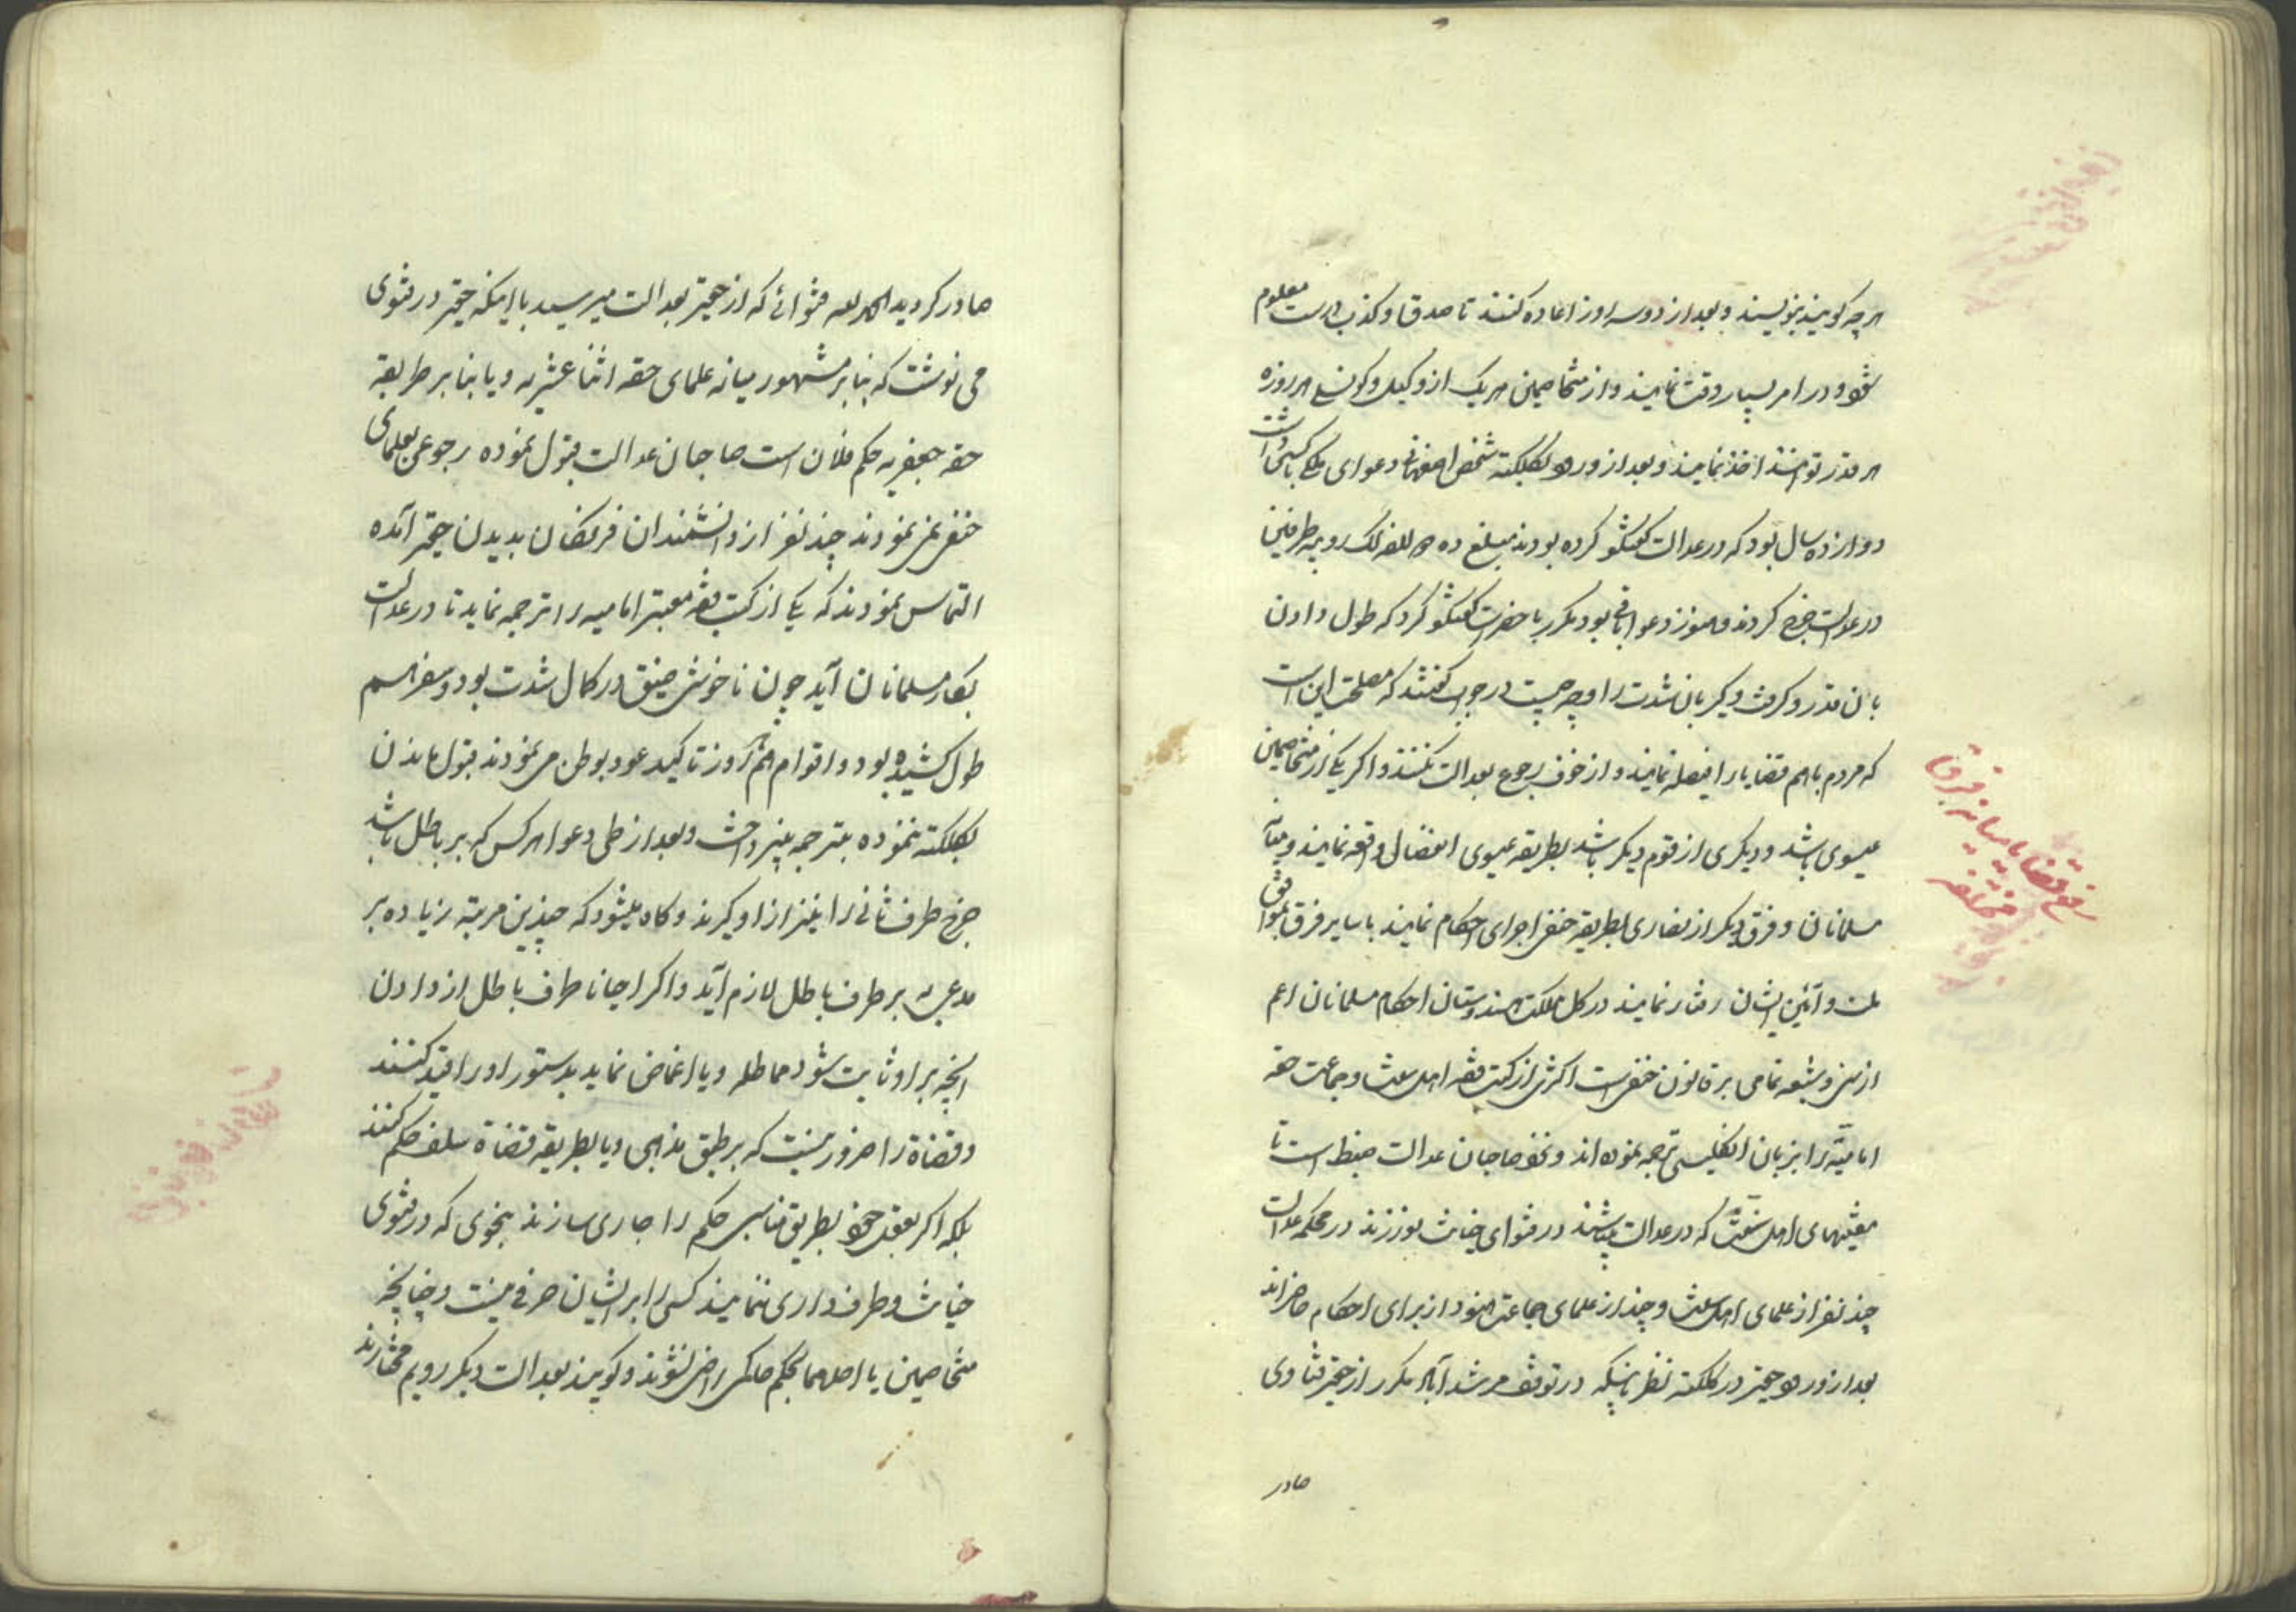 هرچه گویند بنویسند و بعد از دو سه روز اعاده کنند تا صدق و کذب راست معلوم
شود و در امر بسیار دقت نمایند و از متخاصمین هر یک از وکیل و کونسلی هر روزه
هر قدر توانند اخذ نمایند و بعد از ورود بکلکته شخص اصفهانی دعوای ملکی با کسی داشت
دوازده سال بود که در عدالت گفتگو کرده بودند مبلغ ده دوازده لک روپیه طرفین
در عدالت خرج کردند و هنوز دعوا باقی بود مکرر با حضرات گفتگو کرد که طول دادن
بان قدر و گرفت و گیر بان شدت را وجه چیست در جواب گفتند که مصلحت این است
که مردم باهم قضایا را فیصله نمایند و از خوف رجوع بعدالت نکنند و اگر یکی از متخاصمین
عیسوی باشد و دیگری از قوم دیگر باشد بطریقه عیسوی انفصال واقعه نمایند و میان
مسلمانان و فرق دیگر از نصاری بطریقه حنفی اجرای احکام نمایند با سایر فرق بموافق
ملت و آئین ایشان رفتار نمایند در کل مملکت هندوستان احکام مسلمانان اعم
از سنی و شیعه تمامی بر قانون حنفی است اکثری از کتب فقه اهل سنت و جماعت حقه
امامیه را بزبان انگلیسی ترجمه نموده‌اند و نزد صاحبان عدالت ضبط است تا
مفتیهای اهل سنت که در عدالت میباشند در فتوای خیانت نورزند در محکمه عدالت
چند نفر از علمای اهل سنت و چند از علمای جماعت هنود از برای احکام حاضراند
بعد از ورود حقیر در کلکته نظر باینکه در توقف مرشدآباد مکرر از حقیر فتاوی
صادر
رفع قضایا میانه فرق
مختلفه
صادر گردید الحمد لله فتوائی که از حقیر بعدالت میرسید با اینکه حقیر در فتوی
می نوشت که بنابر مشهور میانه علمای حقه اثنا عشریه و یا بنابر طریقه
حقه جعفریه حکم فلان است صاحبان عدالت قبول نموده رجوعی بعلمای
حنفی نمی نمودند چند نفر از دانشمندان فرنگان بدیدن حقیر آمده
التماس نمودند که یکی از کتب فقه معتبر امامیه را ترجمه نماید تا در عدالت
بکار مسلمانان آید چون ناخوشی ضیق در کمال شدت بود و سفر هم
طول کشیده بود و اقوام هم هر روز تاکید عود بوطن می نمودند قبول ماندن
بکلکته ننموده بترجمه نپرداخت و بعد از طی دعوا هر کس که بر باطل باشد
خرج طرف ثانی را نیز از او گیرند و گاه میشود که چندین مرتبه زیاده بر
مدعی به بر طرف باطل لازم آید و اگر احیانا طرف باطل از دادن
آنچه بر او ثابت شود مماطله و یا اغماض نماید بدستور او را قید کنند
و قضاة را ضرور نیست که بر طبق مذهبی و یا بطریقه قضاة سلف حکم کنند
بلکه اگر بعقل خود بطریق مناسبی حکم را جاری سازند بنحوی که در فتوی
خیانت و طرف داری ننمایند کسی را بر ایشان حرفی نیست و چنانچه
متخاصمین یا احدهما بحکم حاکمی راضی نشوند و گویند بعدالت دیگر رویم مختارند